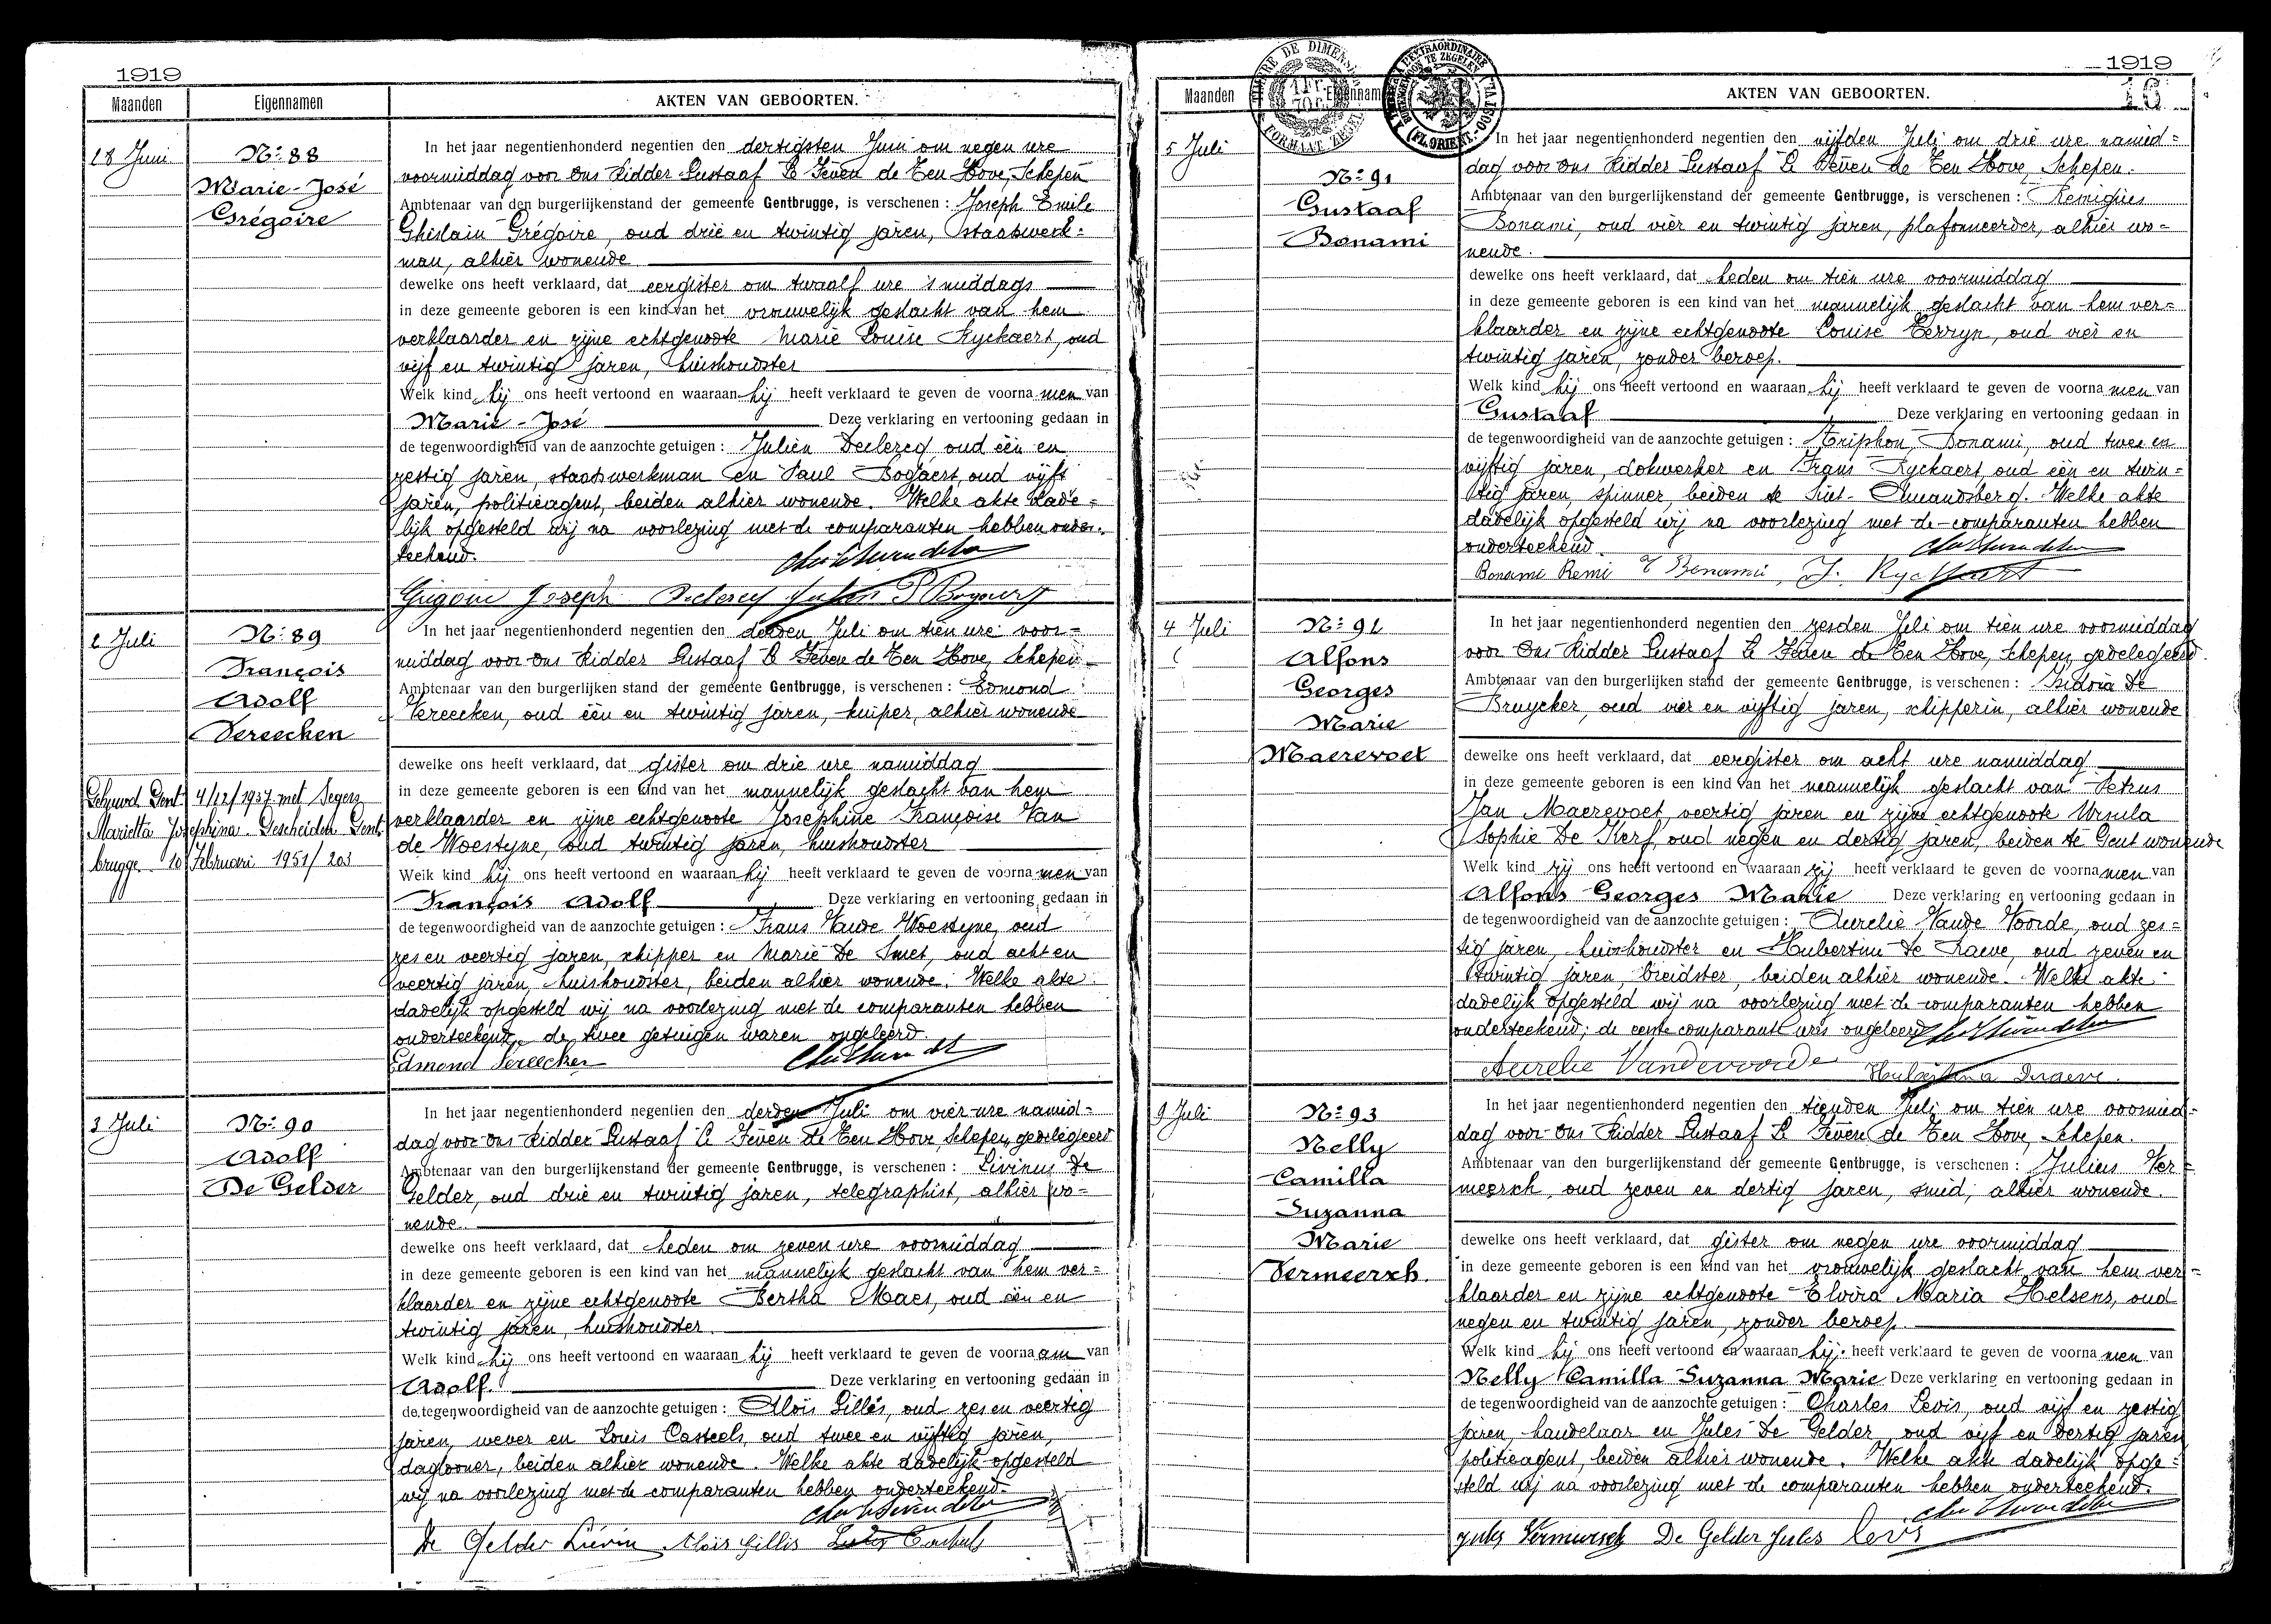 1919
Maanden Eigennamen AKTEN VAN GEBOORTEN.
28 Juni
No 88
Marie-José
Grégoire
In het jaar negentienhonderd negentien den dertigsten Juni om negen ure
voormiddag voor Ons Ridder Gustaaf Le Fèven de Ten Hove, Schepen
Ambtenaar van den burgerlijkenstand der gemeente Gentbrugge, is verschenen : Joseph Emile
Ghislain Grégoire, oud drie en twintig jaren, staatswerk=
man, alhier wonende
dewelke ons heeft verklaard, dat eergister om twaalf ure 's middags
in deze gemeente geboren is een kind van het vrouwelijk geslacht van hem
verklaarder en zijne echtgenoote Marie Louise Ryckaert, oud
vijf en twintig jaren, huishoudster
Welk kind hij ons heeft vertoond en waaraan hij heeft verklaard te geven de voorna men van
Marie-José Deze verklaring en vertooning gedaan in
de tegenwoordigheid van de aanzochte getuigen : Julien Declercq oud één en
zestig jaren, staatswerkman en Paul Bogaert, oud vijft
jaren, politieagent, beiden alhier wonende. Welke akte dade=
lijk opgesteld wij na voorlezing met de comparanten hebben onder-
teekend.
Grégoire Joseph Declercq Julien P Bogaert
2 Juli
No 89
François
Adolf
Vereecken
Gehuwd Gent 4/12/1937 met Segers
Marietta Josephina. Gescheiden Gent-
brugge 10 Februari 1951/203
In het jaar negentienhonderd negentien den derden Juli om tien ure voor=
middag voor Ons Ridder Gustaaf Le Fèven de Ten Hove, Schepen
Ambtenaar van den burgerlijken stand der gemeente Gentbrugge, is verschenen : Edmond
Vereecken, oud één en twintig jaren, kuiper, alhier wonende
dewelke ons heeft verklaard, dat gister om drie ure namiddag
in deze gemeente geboren is een kind van het mannelijk geslacht van hem
verklaarder en zijne echtgenoote Josephine Françoise Van
de Woestyne, oud twintig jaren, huishoudster
Welk kind hij ons heeft vertoond en waaraan hij heeft verklaard te geven de voorna men van
François Adolf Deze verklaring en vertooning gedaan in
de tegenwoordigheid van de aanzochte getuigen : Frans Vande Woestyne, oud
zes en veertig jaren, schipper en Marie De Smet, oud acht en
veertig jaren, huishoudster, beiden alhier wonende. Welke akte
dadelijk opgesteld wij na voorlezing met de comparanten hebben
onderteekend, de twee getuigen waren ongeleerd.
Edmond Vereecken
3 Juli
No 90
Adolf
De Gelder
In het jaar negentienhonderd negentien den derden Juli om vier ure namid=
dag voor Ons Ridder Gustaaf Le Fèven de Ten Hove, Schepen, gedelegeerd
Ambtenaar van den burgerlijkenstand der gemeente Gentbrugge, is verschenen : Livinus De
Gelder, oud drie en twintig jaren, telegraphist, alhier wo=
nende.
dewelke ons heeft verklaard, dat heden om zeven ure voormiddag
in deze gemeente geboren is een kind van het mannelijk geslacht van hem ver=
klaarder en zijne echtgenoote Bertha Maes, oud één en
twintig jaren, huishoudster.
Welk kind hij ons heeft vertoond en waaraan hij heeft verklaard te geven de voorna am van
Adolf. Deze verklaring en vertooning gedaan in
de tegenwoordigheid van de aanzochte getuigen : Aloïs Gillis, oud zes en veertig
jaren, wever en Louis Casteels, oud twee en vijftig jaren,
dagloner, beiden alhier wonende. Welke akte dadelijk opgesteld
wij na voorlezing met de comparanten hebben onderteekend.
De Gelder Liévin Aloïs Gillis Casteels
1919
16
Maanden Eigennamen AKTEN VAN GEBOORTEN.
5 Juli
No 91
Gustaaf
Bonami
In het jaar negentienhonderd negentien den vijfden Juli om drie ure namid=
dag voor Ons Ridder Gustaaf Le Fèven de Ten Hove, Schepen.
Ambtenaar van den burgerlijkenstand der gemeente Gentbrugge, is verschenen : Remigius
Bonami, oud vier en twintig jaren, plafonneerder, alhier wo=
nende.
dewelke ons heeft verklaard, dat heden om tien ure voormiddag
in deze gemeente geboren is een kind van het mannelijk geslacht van hem ver=
klaarder en zijne echtgenoote Louise Terryn, oud vier en
twintig jaren, zonder beroep.
Welk kind hij ons heeft vertoond en waaraan hij heeft verklaard te geven de voorna men van
Gustaaf Deze verklaring en vertooning gedaan in
de tegenwoordigheid van de aanzochte getuigen : Triphon Bonami, oud twee en
vijftig jaren, dokwerker en Frans Ryckaert, oud één en twin=
tig jaren, spinner, beiden te Sint-Amandsberg. Welke akte
dadelijk opgesteld wij na voorlezing met de comparanten hebben
onderteekend.
Bonami Remi T Bonami, F. Ryckaert
4 Juli
No 92
Alfons
Georges
Marie
Maerevoet
In het jaar negentienhonderd negentien den zesden Juli om tien ure voormiddag
voor Ons Ridder Gustaaf Le Fèven de Ten Hove, Schepen, gedelegeerd.
Ambtenaar van den burgerlijken stand der gemeente Gentbrugge, is verschenen : Isidoria De
Bruycker, oud vier en vijftig jaren, schipperin, alhier wonende
dewelke ons heeft verklaard, dat eergister om acht ure namiddag
in deze gemeente geboren is een kind van het mannelijk geslacht van Petrus
Jan Maerevoet, veertig jaren en zijne echtgenoote Ursula
Sophie De Kerf, oud negen en dertig jaren, beiden te Gent wonende
Welk kind zij ons heeft vertoond en waaraan zij heeft verklaard te geven de voorna men van
Alfons Georges Marie Deze verklaring en vertooning gedaan in
de tegenwoordigheid van de aanzochte getuigen : Aurelie Vande Voorde, oud zes=
tig jaren, huishoudster en Hubertine De Draeve, oud zeven en
twintig jaren, breidster, beiden alhier wonende. Welke akte
dadelijk opgesteld wij na voorlezing met de comparanten hebben
onderteekend; de eerste comparant was ongeleerd
Aurelie Vandevoorde Hubertina Draeve.
9 Juli
No 93
Nelly
Camilla
Suzanna
Marie
Vermeersch.
In het jaar negentienhonderd negentien den tienden Juli om tien ure voormid=
dag voor Ons Ridder Gustaaf Le Fèven de Ten Hove, Schepen.
Ambtenaar van den burgerlijkenstand der gemeente Gentbrugge, is verschenen : Julius Ver=
meersch, oud zeven en dertig jaren, smid, alhier wonende.
dewelke ons heeft verklaard, dat gister om negen ure voormiddag
in deze gemeente geboren is een kind van het vrouwelijk geslacht van hem ver=
klaarder en zijne echtgenoote Elvira Maria Helsens, oud
negen en twintig jaren, zonder beroep.
Welk kind hij ons heeft vertoond en waaraan hij heeft verklaard te geven de voorna men van
Nelly Camilla Suzanna Marie Deze verklaring en vertooning gedaan in
de tegenwoordigheid van de aanzochte getuigen : Charles Levis, oud vijf en zestig
jaren, handelaar en Jules De Gelder, oud vijf en dertig jaren
politieagent, beiden alhier wonende. Welke akte dadelijk opge=
steld wij na voorlezing met de comparanten hebben onderteekend.
Jules Vermeersch De Gelder Jules Levis